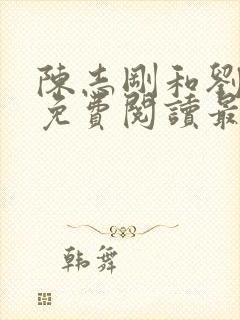 陳志剛和劉
免費閱讀最
韓舞